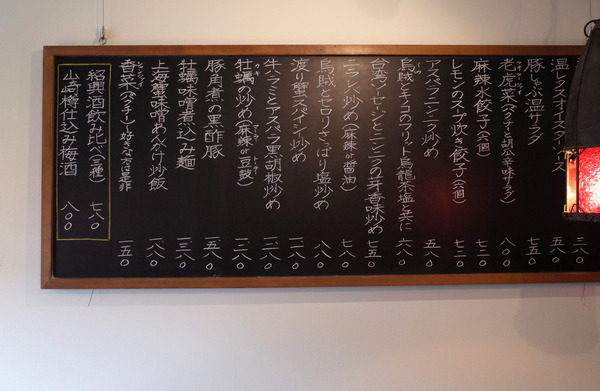 温レタスオイスターソース 三八〇
豚しゃぶ温サラダ 七五〇
老虎菜(パクチーと胡瓜辛味サラダ) 八〇〇
麻辣水餃子(六個) 七二〇
レモンのスープ炊き餃子(六個) 七二〇
アスパラニンニク炒め 五八〇
烏賊とキノコのフリット烏龍茶塩と共に 六八〇
台湾ソーセージとニンニクの芽香味炒め 七五〇
ニラレバ炒め(麻辣or醤油) 七八〇
烏賊とセロリさっぱり塩炒め 八八〇
渡り蟹スパイシー炒め 一二八〇
牛ハラミとアスパラ黒胡椒炒め 一二八〇
牡蠣の炒め(麻辣or豆鼓) 一二八〇
豚角煮の黒酢豚 一五八〇
牡蠣味噌煮込み麺 一三八〇
上海蟹味噌あんかけ炒飯 一八八〇
香菜(パクチー)…お好きな方は是非 一五〇
紹興酒飲み比べ(三種) 七八〇
山崎樽仕込み梅酒 八〇〇